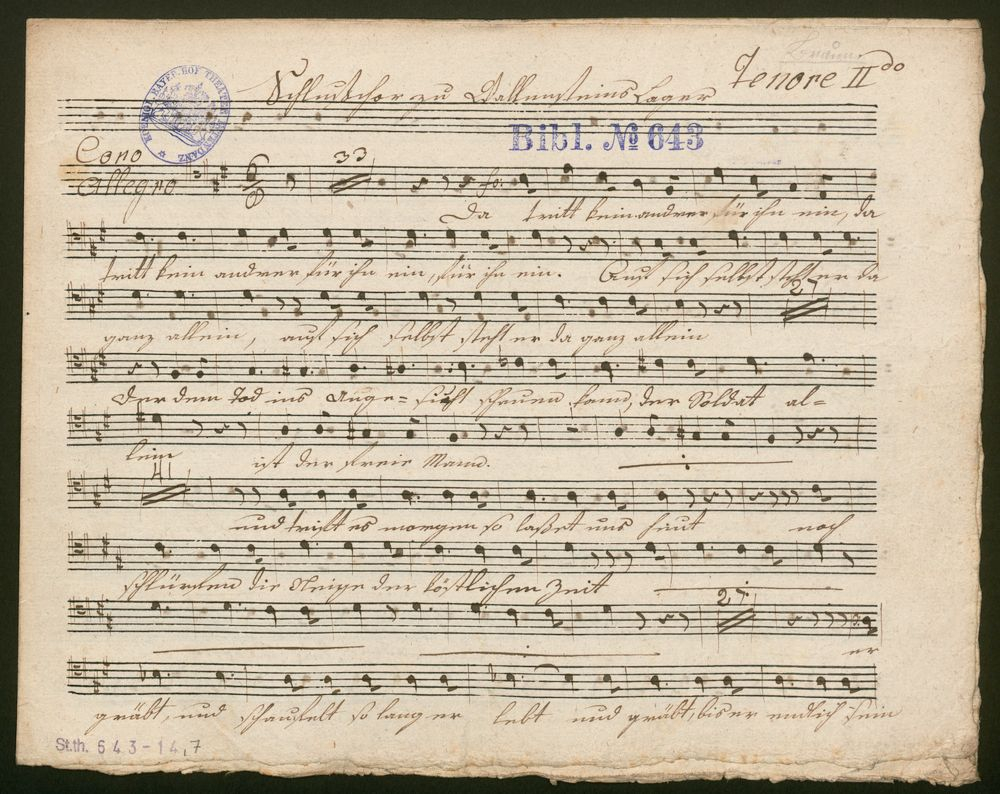 Braun.
Tenore II do
Schlußchor zu Wallensteins Lager
KOENIGL. BAYER. HOF THEATER INTENDANZ
Bibl. № 643
Coro
Allegro
6
8
33
fo:
Da tritt kein andrer für ihn ein, da
tritt kein andrer für ihn ein, für ihn ein. Auf sich selbst steht er da
27
ganz allein, auf sich selbst steht er da ganz allein
Der dem Tod ins Ange= sicht schauen kann, der Soldat al=
lein ist der freie Mann.
41
und trifft es morgen so lasset uns heut noch
schlürfen die Neige der köstlichen Zeit
27
er
gräbt, und schaufelt so lang er lebt und gräbt, bis er endlich sein
St.th. 643-14,7